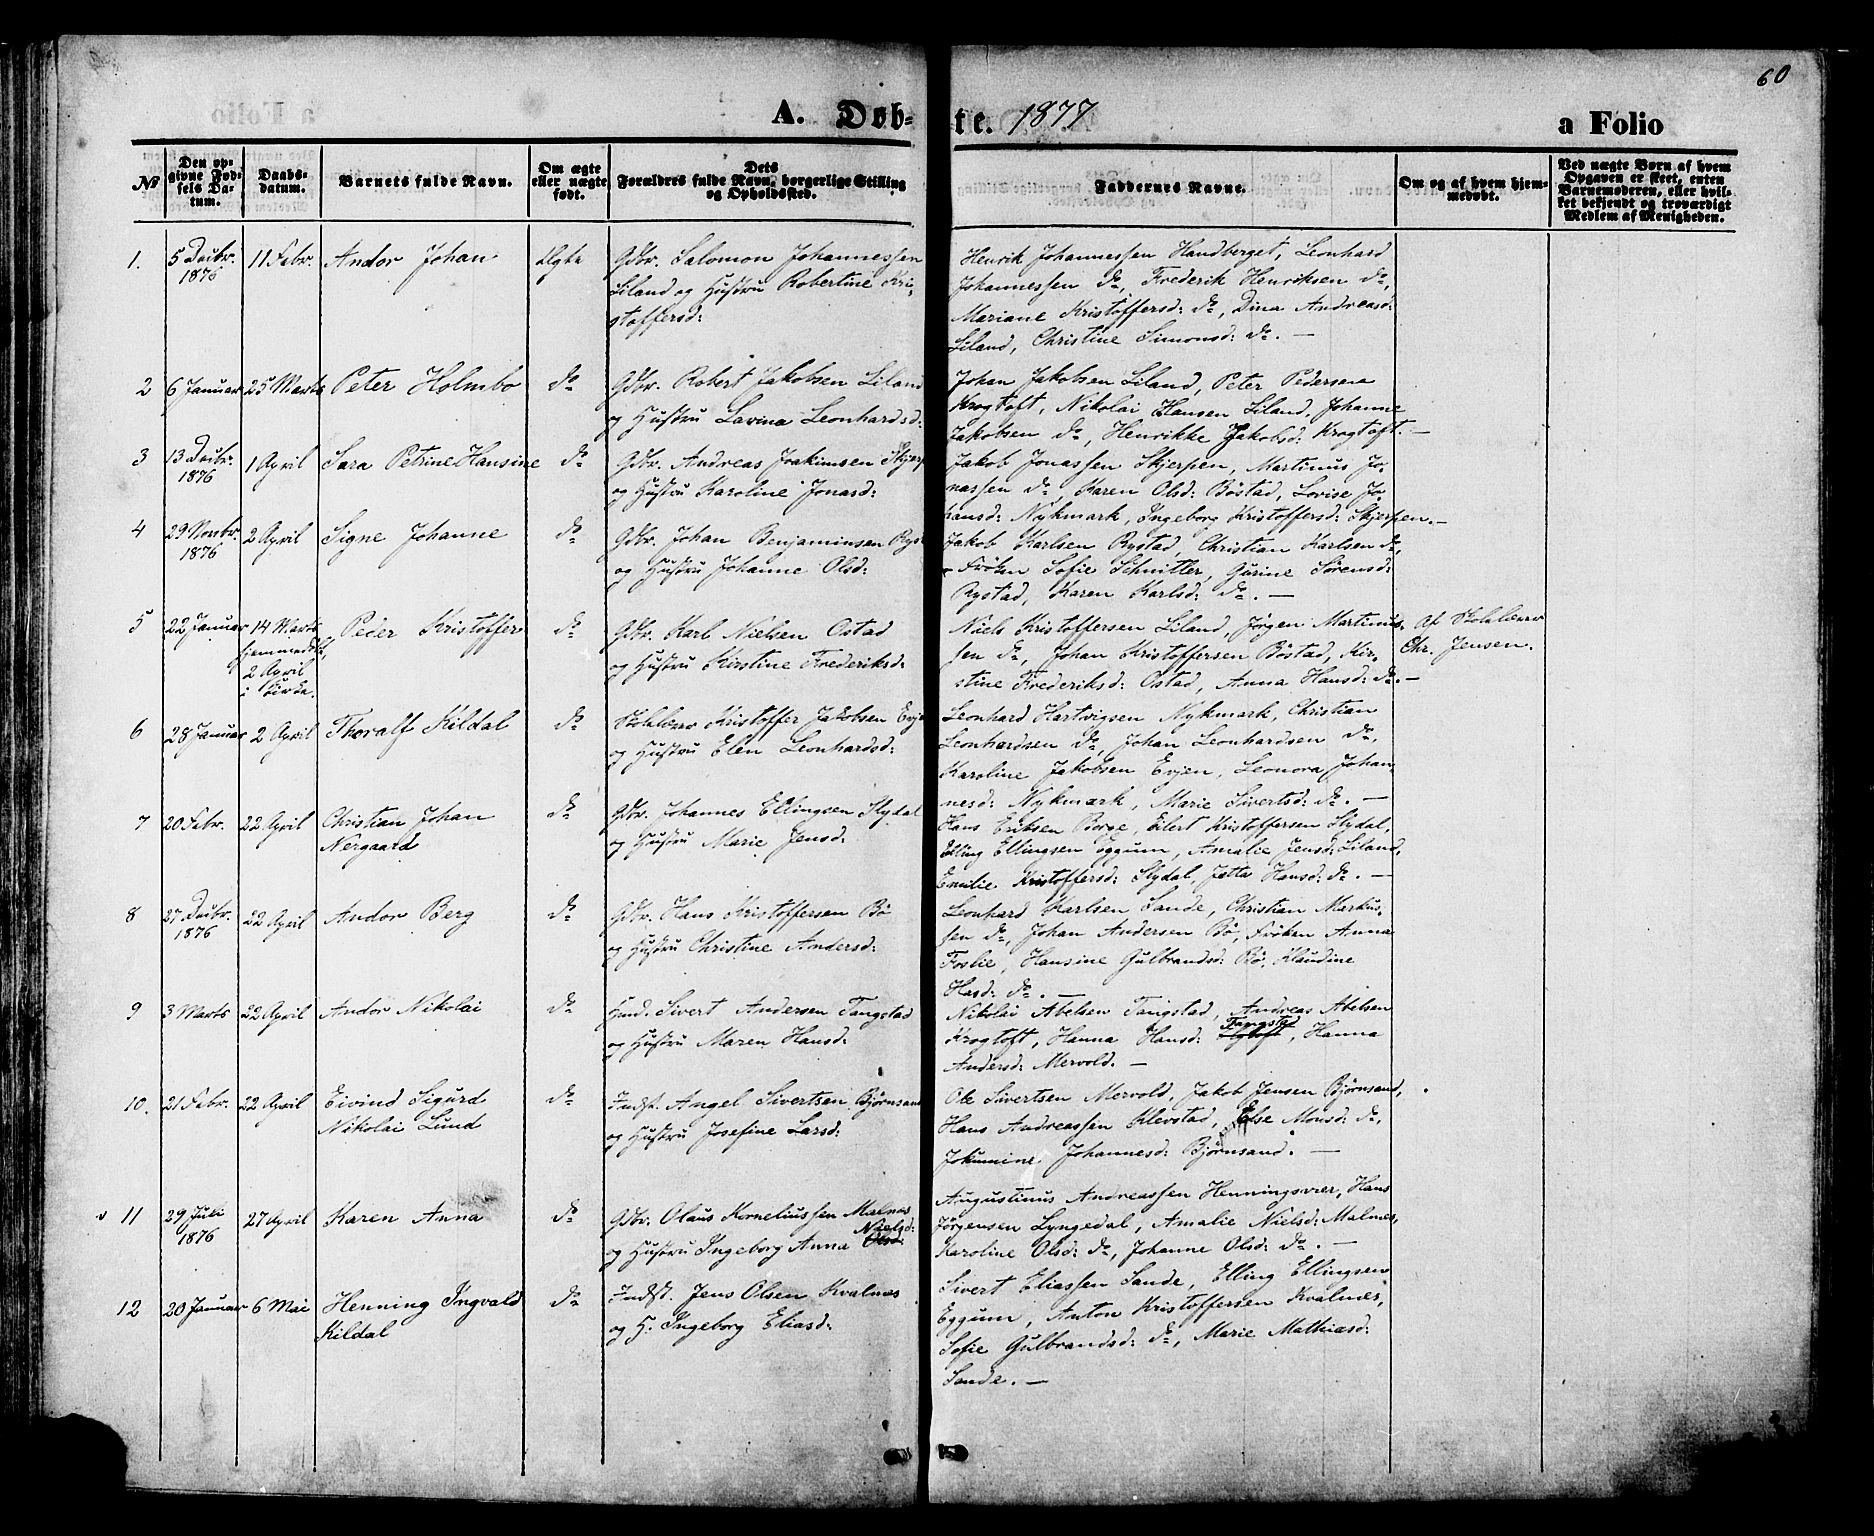 60
A. Døb- te. 1877 a Folio
No
Den op-
givne Fød-
sels Da-
tum.
Daabs-
datum.
Barnets fulde Navn.
Om ægte
eller uægte
født.
Dets
Forældres fulde Navn, borgerlige Stilling
og Opholdssted.
Faddernes Navne.
Om og af hvem hjem-
medøbt.
Ved uægte Børn af hvem
Opgaven er skeet, enten
Barnemoderen, eller hvil-
ket bekjendt og troværdigt
Medlem af Menigheden.
1. 5 Decbr. 1876 11 Febr. Andor Johan Ægte
Gdbr. Salomon Johannessen
Liland og Hustru Robertine Kri-
stoffersd:
Henrik Johannessen Handberget, Leonhard
Johannessen do, Frederik Henriksen do,
Mariane Kristoffersd: do, Dina Andreasd:
Liland, Christine Simonsd: do. —
2 6 Januar 25 Marts Peter Holmbo do
Gdbr. Robert Jakobsen Liland
og Hustru Lavina Leonhardsd:
Johan Jakobsen Liland, Peter Pedersen
Krogtoft, Nikolai Hansen Liland, Johanne
Jakobsen do, Henrikke Jakobsd: Krogtoft. —
3 13 Decbr. 1876 1 April Sara Petrine Hansine do
Gdbr. Andreas Joakimsen Skjerp
og Hustru Karoline Jonasd:
Jakob Jonassen Skjerpen, Martinus Jo-
nassen do, Karen Olsd: Böstad, Lovise Jo-
hansd: Nykmark, Ingeborg Kristoffersd: Skjerpen. —
4 29 Novbr. 1876 2 April Signe Johanne do
Gdbr. Johan Benjaminsen Ryst
og Hustru Johanne Olsd:
Jakob Karlsen Rystad, Christian Karlsen do,
Fröken Sofie Schnitler, Gurine Sörensd:
Rystad, Karen Karlsd: do. —
5 22 Januar 14 Marts
hjemmedöbt,
2 April
i Kirke.
Peder Kristoffer do
Gdbr. Karl Nielsen Ostad
og Hustru Kirstine Frederiksd:
Niels Kristoffersen Liland, Jörgen Martinus-
sen do, Johan Kristoffersen Böstad, Kir-
stine Frederiksd: Ostad, Anna Hansd: do. —
Af Skolelærer
Chr. Jensen.
6 28 Januar 2 April Thoralf Kildal do
Skolelærer Kristoffer Jakobsen Evje
og Hustru Elen Leonhardsd:
Leonhard Hartvigsen Nykmark, Christian
Leonhardsen do, Johan Leonhardsen do,
Karoline Jakobsen Evjen, Leonora Johan-
nesd: Nykmark, Marie Sivertsd: do. —
7 20 Febr. 22 April Christian Johan
Nergaard
do
Gdbr. Johannes Ellingsen Slydal
og Hustru Marie Jensd:
Hans Eriksen Borge, Eilert Kristoffersen Slydal,
Elling Ellingsen Eggum, Amalie Jensd: Liland,
Emilie Kristoffersd: Slydal, Jetta Hansd: do. —
8 27 Decbr. 1876 22 April Andor Berg do
Gdbr. Hans Kristoffersen Bö
og Hustru Christine Andersd:
Leonhard Karlsen Sande, Christian Markus-
sen do, Johan Andersen Bö, Fröken Anna
Foslie, Hansine Gulbrandsd: Bö, Klaudine
Hasd: do. —
9 3 Marts 22 April Andor Nikolai do
Husd. Sivert Andersen Tangstad
og Hustru Maren Hansd:
Nikolai Abelsen Tangstad, Andreas Abelsen
Krogtoft, Hanna Hansd: Tangstad, Hanna
Andersd: Mervold. —
10. 21 Febr. 22 April Eivind Sigurd
Nikolai Lund
do
Indst. Angel Sivertsen Bjørnsand
og Hustru Josefine Larsd:
Ole Sivertsen Mervold, Jakob Jensen Bjørnsand,
Hans Andreassen Klevstad, Else Monsd: do,
Jokumine Johannesd: Bjørnsand. —
11 29 Juli 1876 27 April Karen Anna do
Gdbr. Olaus Korneliussen Malnes
og Hustru Ingeborg Anna Olsd: Nielsd:
Augustinus Andreassen Henningsvær, Hans
Jørgensen Lyngedal, Amalie Nielsd: Malnes,
Karoline Olsd: do, Johanne Olsd: do. —
12 20 Januar 6 Mai Henning Ingvald
Kildal
do
Indst. Jens Olsen Kvalnes
og H. Ingeborg Eliasd:
Sivert Eliassen Sande, Elling Ellingsen
Eggum, Anton Kristoffersen Kvalnes,
Sofie Gulbrandsd: do, Marie Mathiasd:
Sande. —